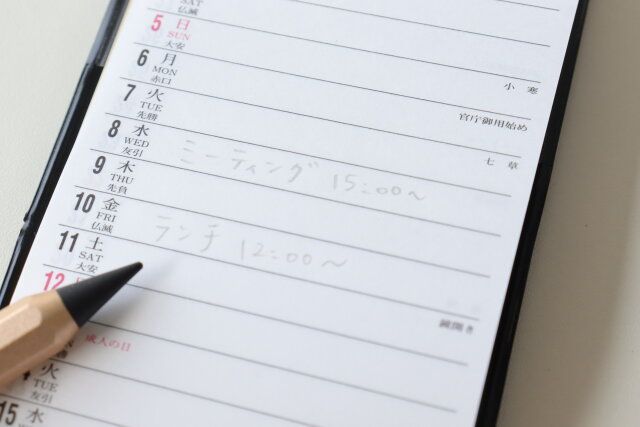 SAT
仏滅
5 日
SUN
大安
小寒
6 月
MON
赤口
官庁御用始め
7 火
TUE
先勝
七草
8 水
WED
友引
ミーティング 15:00～
9 木
THU
先負
10 金
FRI
仏滅
ランチ 12:00～
11 土
SAT
大安
鏡開き
12
成人の日
TUE
友引
15 水